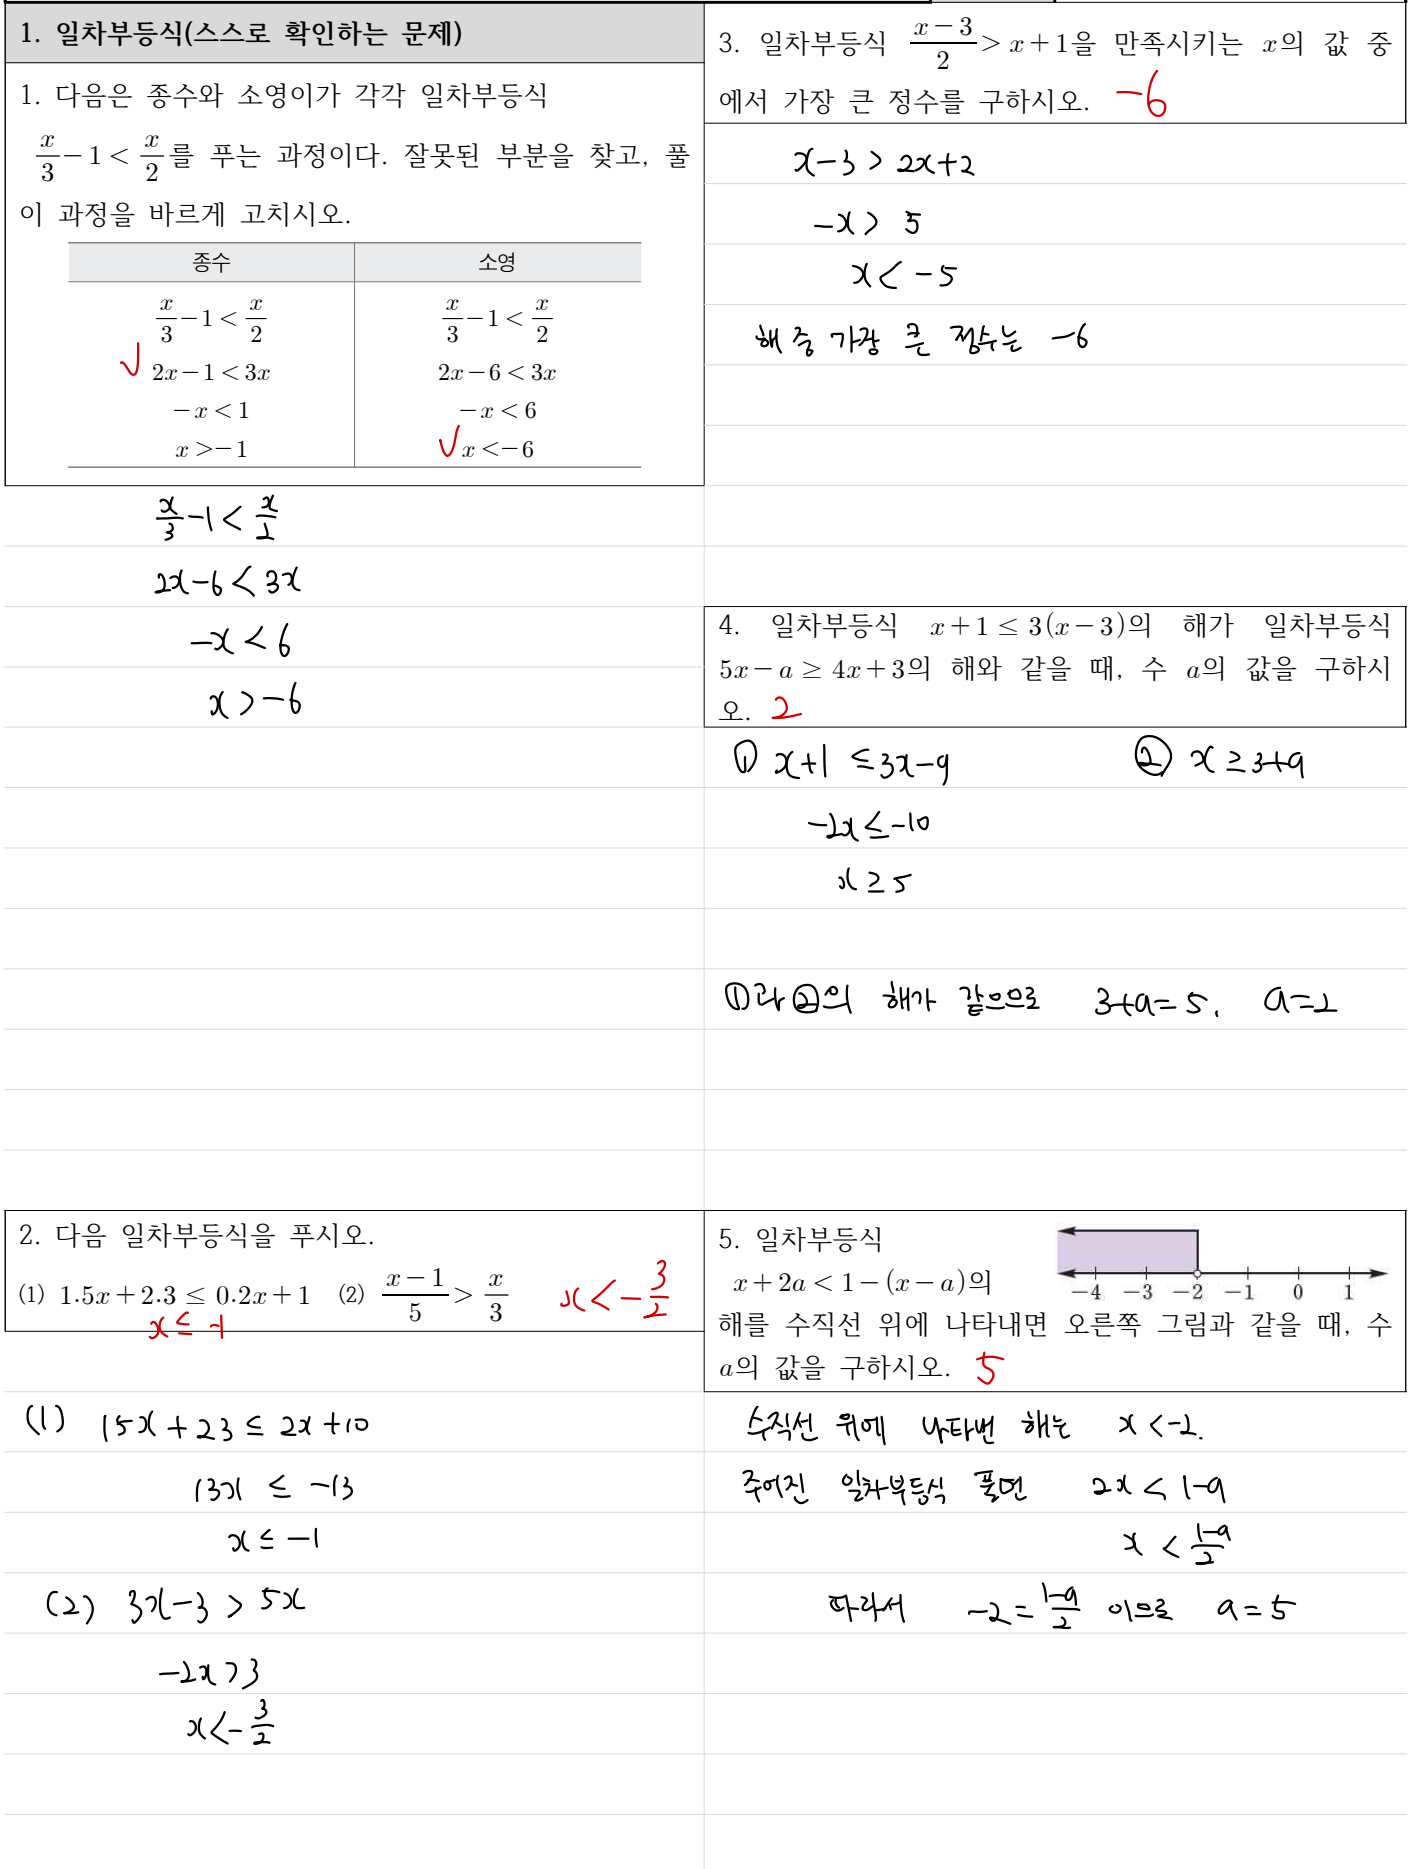 1. 일차부등식(스스로 확인하는 문제)
1. 다음은 종수와 소영이가 각각 일차부등식
x/3 − 1 < x/2 를 푸는 과정이다. 잘못된 부분을 찾고, 풀
이 과정을 바르게 고치시오.
종수 소영
x/3 − 1 < x/2 x/3 − 1 < x/2
✓ 2x − 1 < 3x 2x − 6 < 3x
−x < 1 −x < 6
x > −1 ✓ x < −6
x/3 − 1 < x/2
2x − 6 < 3x
−x < 6
x > −6
2. 다음 일차부등식을 푸시오.
(1) 1.5x + 2.3 ≤ 0.2x + 1 (2) (x − 1)/5 > x/3 x < −3/2
x ≤ −1
(1) 15x + 23 ≤ 2x + 10
13x ≤ −13
x ≤ −1
(2) 3x − 3 > 5x
−2x > 3
x < −3/2
3. 일차부등식 (x − 3)/2 > x + 1을 만족시키는 x의 값 중
에서 가장 큰 정수를 구하시오. −6
x − 3 > 2x + 2
−x > 5
x < −5
해 중 가장 큰 정수는 −6
4. 일차부등식 x + 1 ≤ 3(x − 3)의 해가 일차부등식
5x − a ≥ 4x + 3의 해와 같을 때, 수 a의 값을 구하시
오. 2
① x + 1 ≤ 3x − 9 ② x ≥ 3 + a
−2x ≤ −10
x ≥ 5
①과 ②의 해가 같으므로 3 + a = 5, a = 2
5. 일차부등식
x + 2a < 1 − (x − a)의
−4 −3 −2 −1 0 1
해를 수직선 위에 나타내면 오른쪽 그림과 같을 때, 수
a의 값을 구하시오. 5
수직선 위에 나타낸 해는 x < −2.
주어진 일차부등식 풀면 2x < 1 − a
x < (1 − a)/2
따라서 −2 = (1 − a)/2 이므로 a = 5